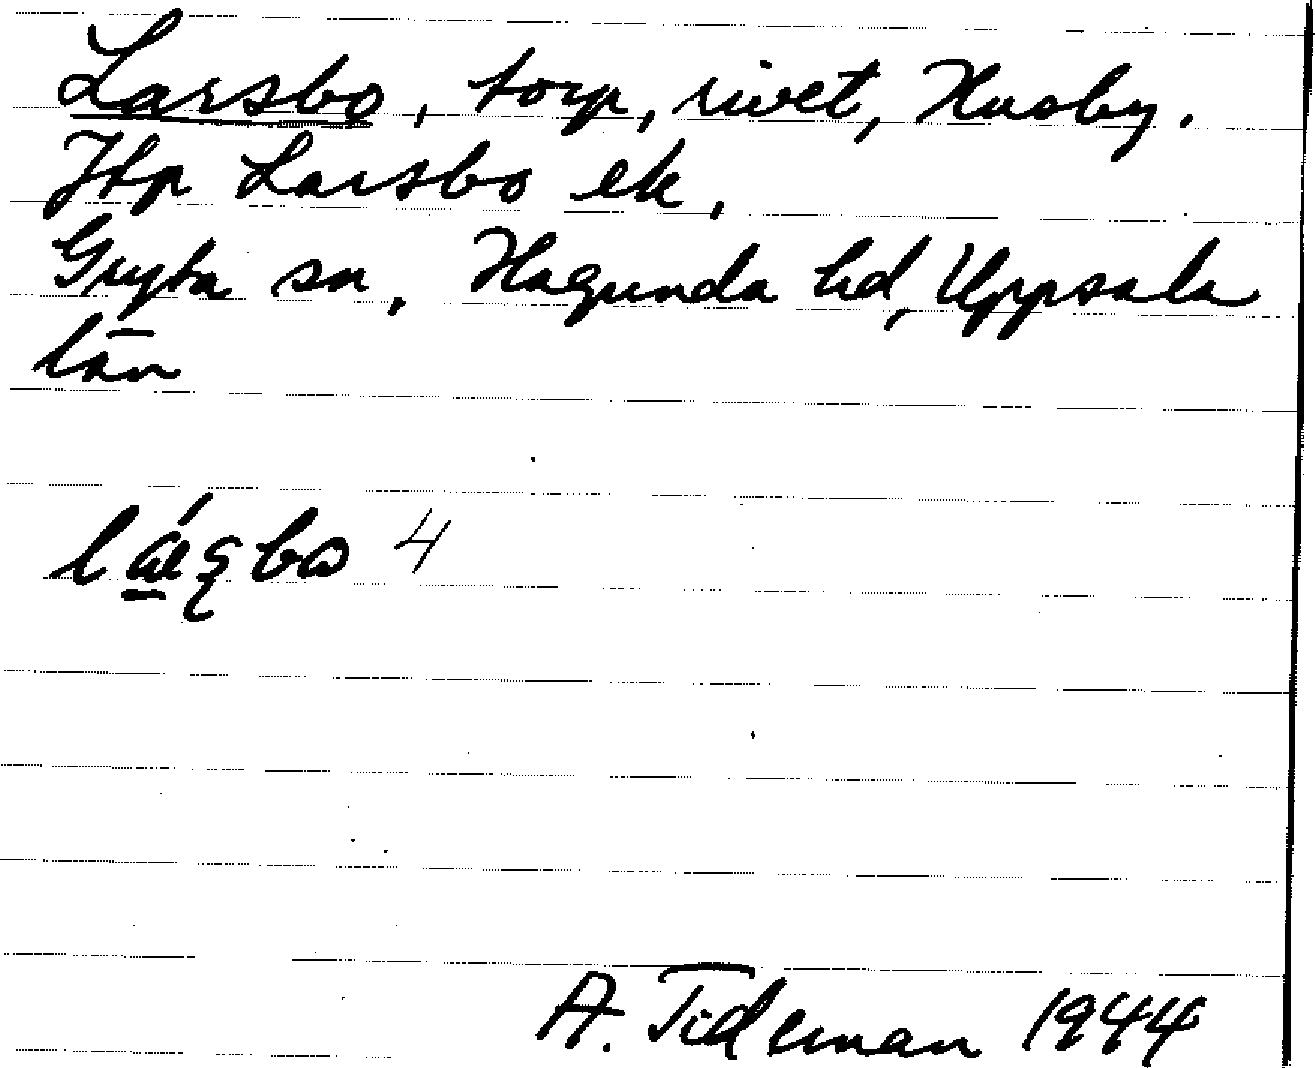 Larsbo, torp, rivet, Husby.
Jfp Larsbo ek.
Gryta sn, Hagunda hd, Uppsala
län
A. Tideman 1944